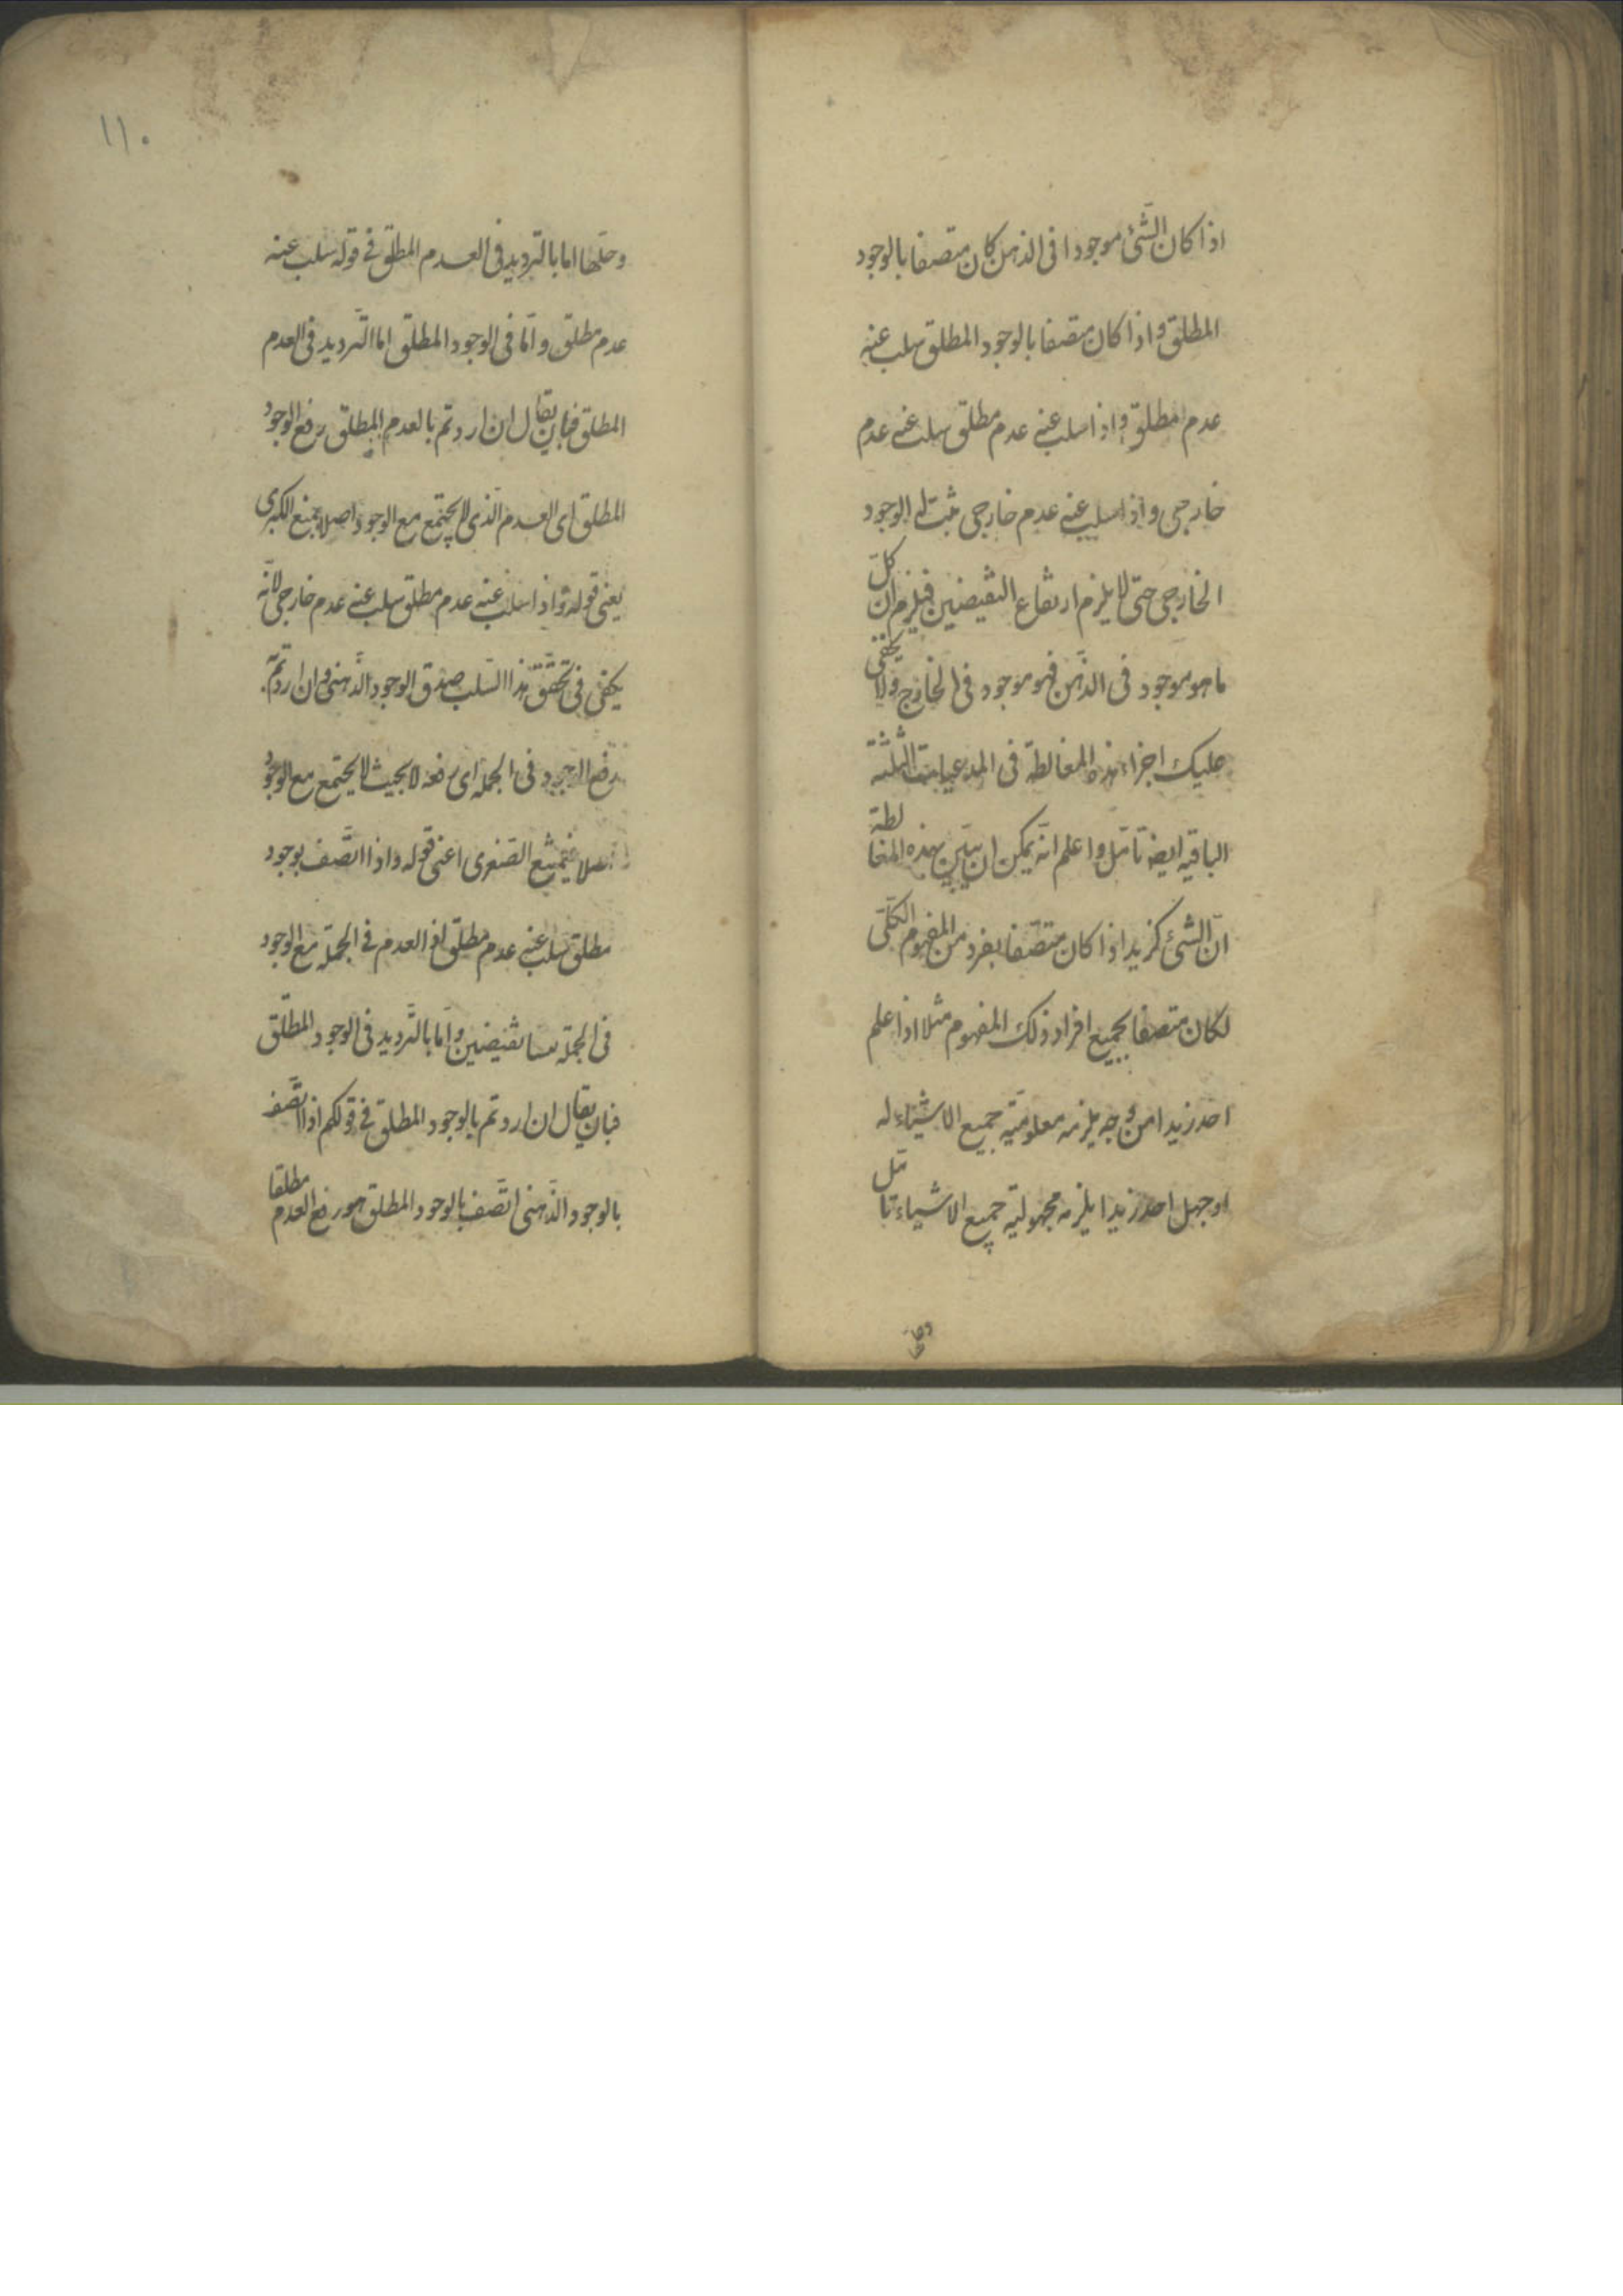 اذا كان الشّئ موجودا فى الذهن كان متصفا بالوجود
المطلق واذا كان متصفا بالوجود المطلق سلب عنه
عدم مطلق واذا سلب عنه عدم مطلق سلب عنه عدم
خارجى واذا سلب عنه عدم خارجى ثبت له الوجود
الخارجى حتى لا يلزم ارتفاع النقيضين فيلزم ان كلّ
ما هو موجود فى الذّهن فهو موجود فى الخارج ولا يخفى
عليك اجراء هذه المغالطة فى المدعيات الثلثة
الباقيه ايضا تأمّل واعلم انّه يمكن ان يبيّن بهذه المغالطة
انّ الشئ كزيد اذا كان متّصفا بفرد من المفهوم الكلّى
لكان متصفا بجميع افراد ذلك المفهوم مثلا اذا علم
احد زيدا من وجه يلزمه معلوميّة جميع الاشياء له
او جهل احد زيدا يلزمه مجهولية جميع الاشياء تأمّل
وحلها
١١٠
وحلّها اما بالتّرديد فى العدم المطلق فى قوله سلب عنه
عدم مطلق وامّا فى الوجود المطلق اما التّرديد فى العدم
المطلق فبان يقال ان اردتم بالعدم المطلق رفع الوجود
المطلق اى العدم الّذى لا يجتمع مع الوجود اصلا يمنع الكبرى
يعنى قوله واذا سلب عنه عدم مطلق سلب عنه عدم خارجى لانّه
يكفى فى تحقّق هذا السّلب صدق الوجود الذّهنى وان اردتم
رفع الوجود فى الجملة اى رفعه لا بحيث لا يجتمع مع الوجود
اصلا فيمنع الصّغرى اعنى قوله واذا اتّصف بوجود
مطلق سلب عنه عدم مطلق اذ العدم فى الجملة مع الوجود
فى الجملة ليسا بنقيضين وامّا بالتّرديد فى الوجود المطلق
فبان يقال ان اردتم بالوجود المطلق فى قولكم اذا اتّصف
بالوجود الذّهنى اتّصف بالوجود المطلق هو رفع العدم مطلقا